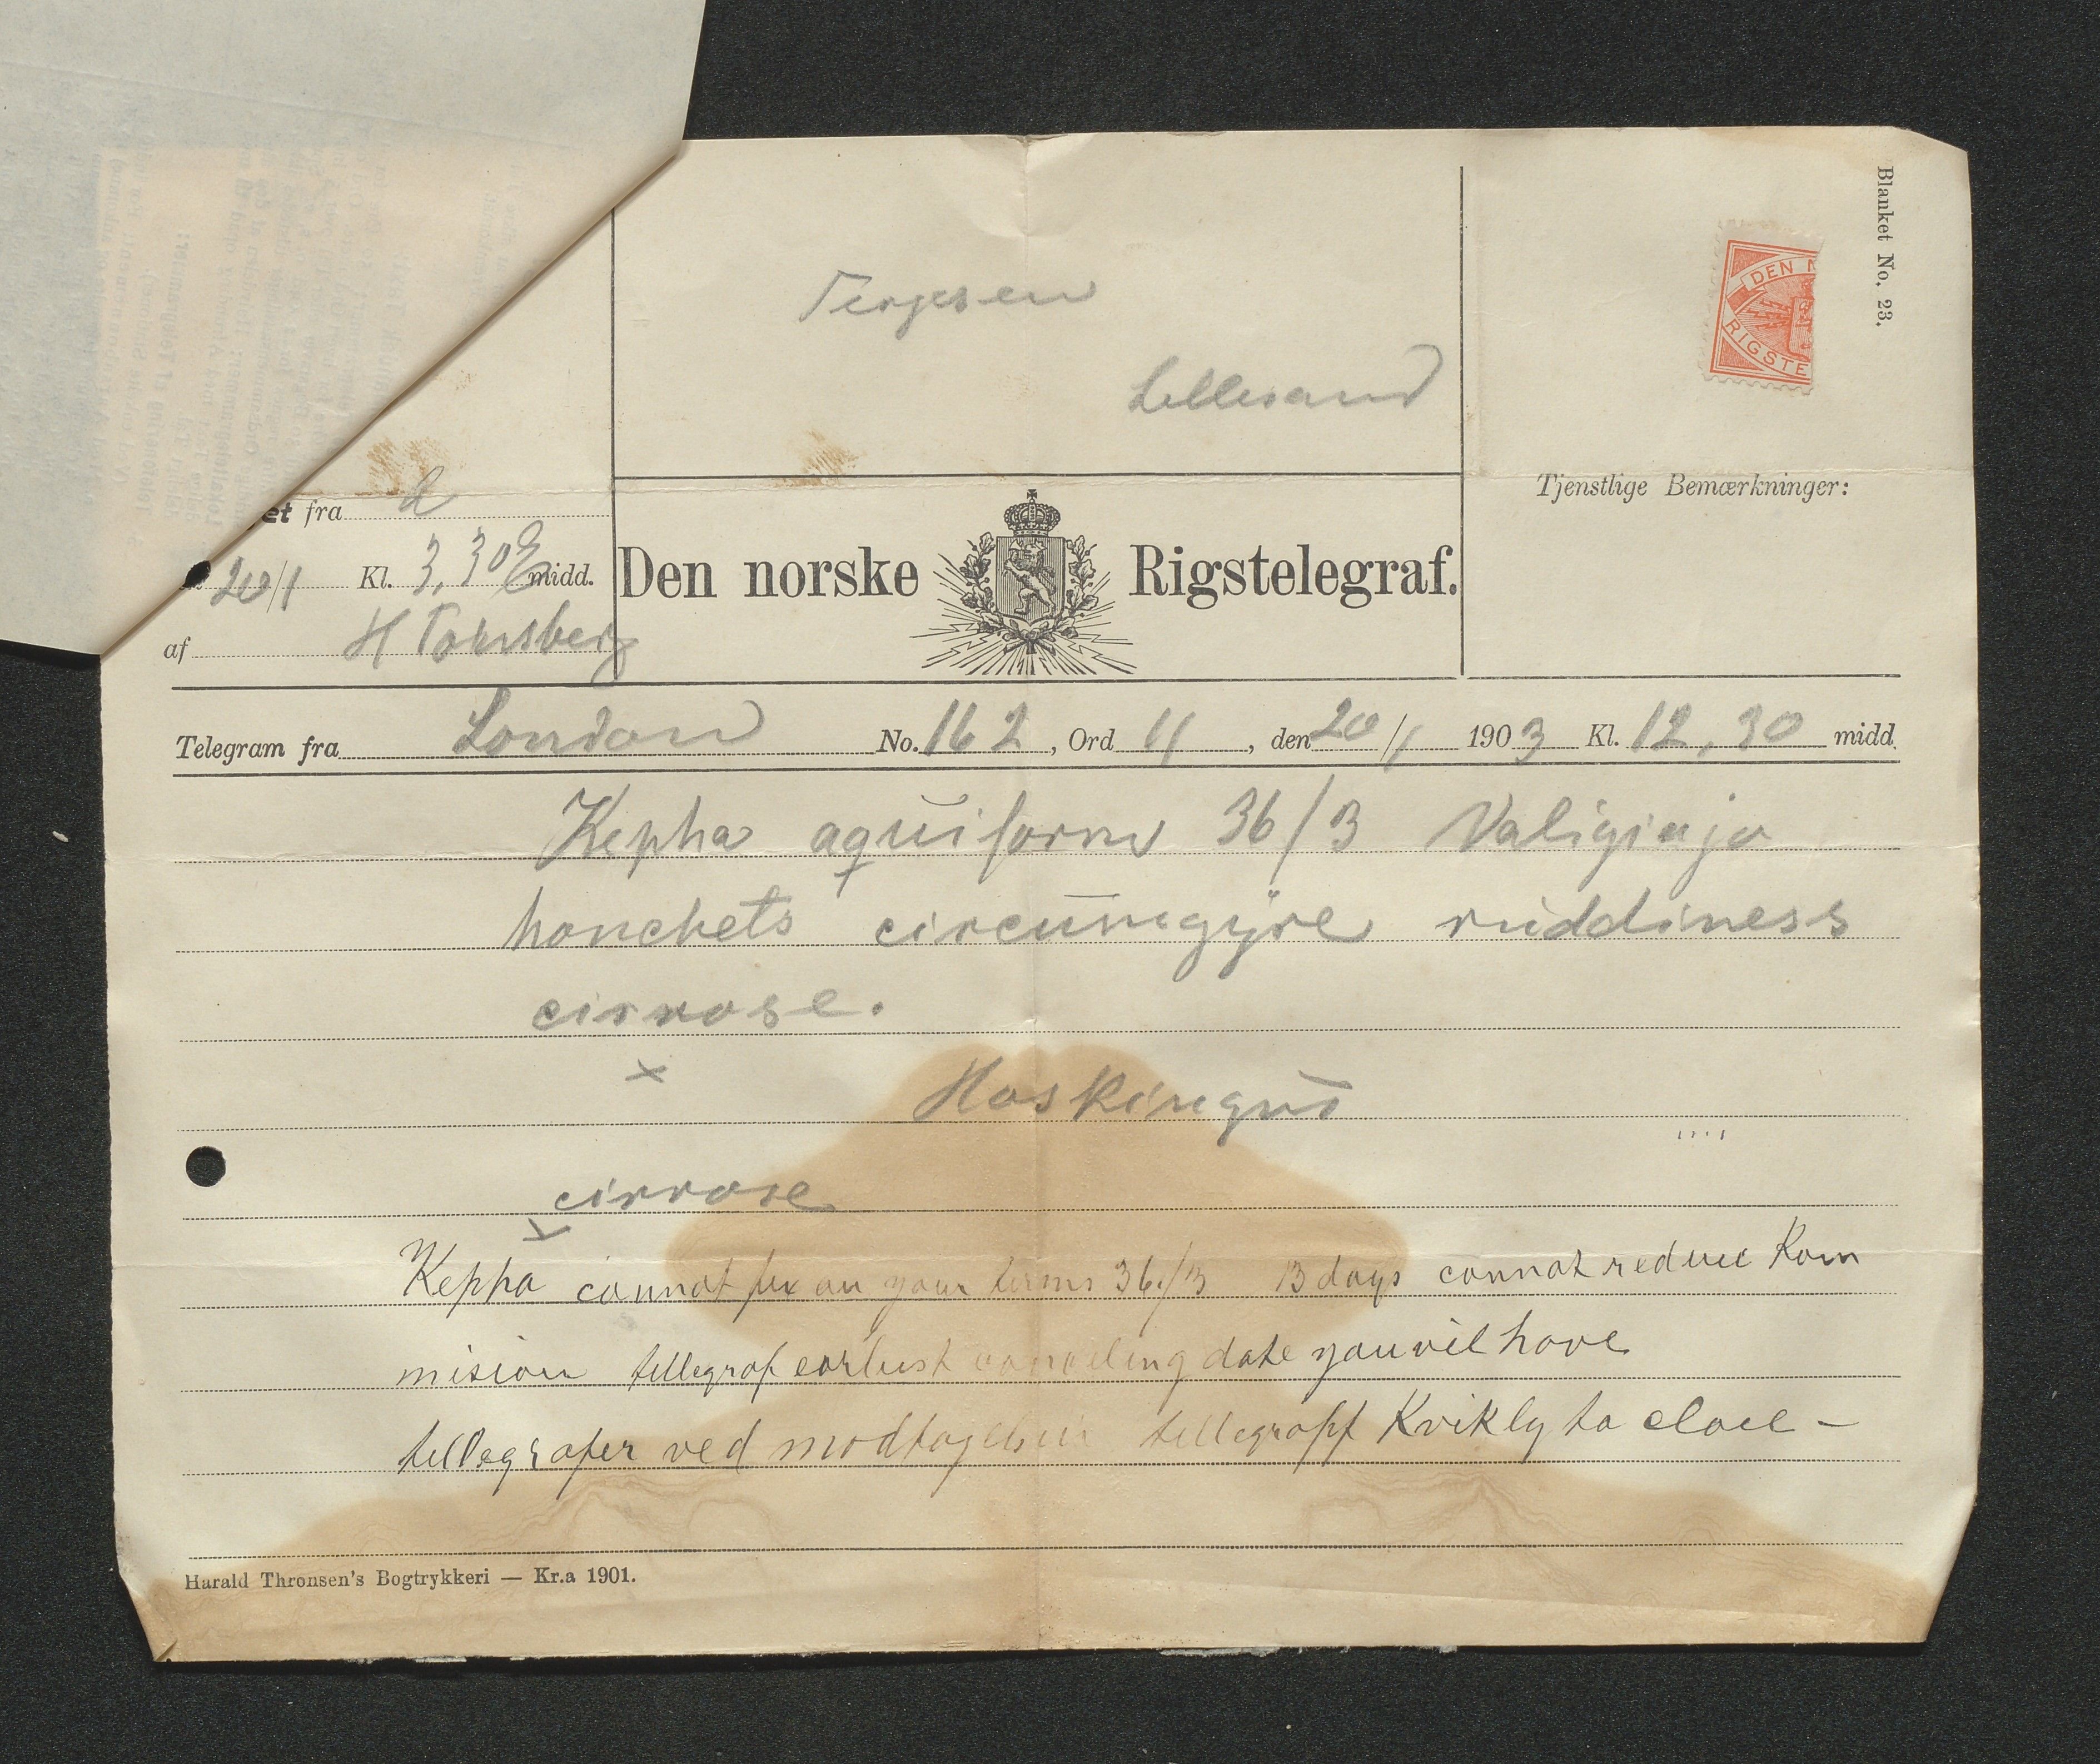 Blanket No. 23.
Terjesen
Lillesand
DEN N
RIGSTE
Tjenstlige Bemærkninger:
et fra
20/1 Kl. 3,30 E midd.
af H Tønsberg
Den norske Rigstelegraf.
Telegram fra London No. 162, Ord 11, den 20/1 1903 Kl. 12,30 midd.
Kepha aquiform 36/3
honchets circumgyre ruddiness
cirrose.
x
cirrose
Kepha cannot fix on your terms 36/3 13 days cannot reduce Kom
mision tellegraf earliest canceling date you vil have
tellegrafer ved modtagelsen tellegraff Kvikly to close –
Harald Thronsen's Bogtrykkeri — Kr.a 1901.